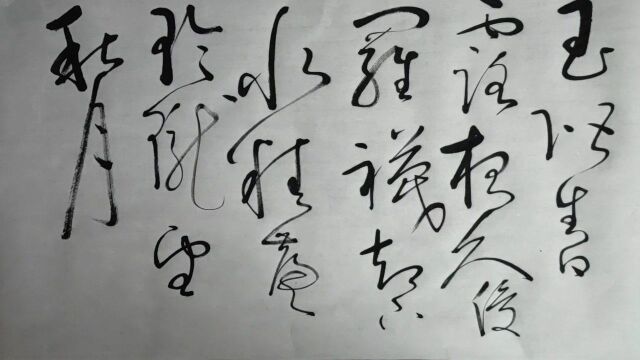 玉階生白
露夜久侵
羅襪却下
水精簾
玲瓏望
秋月